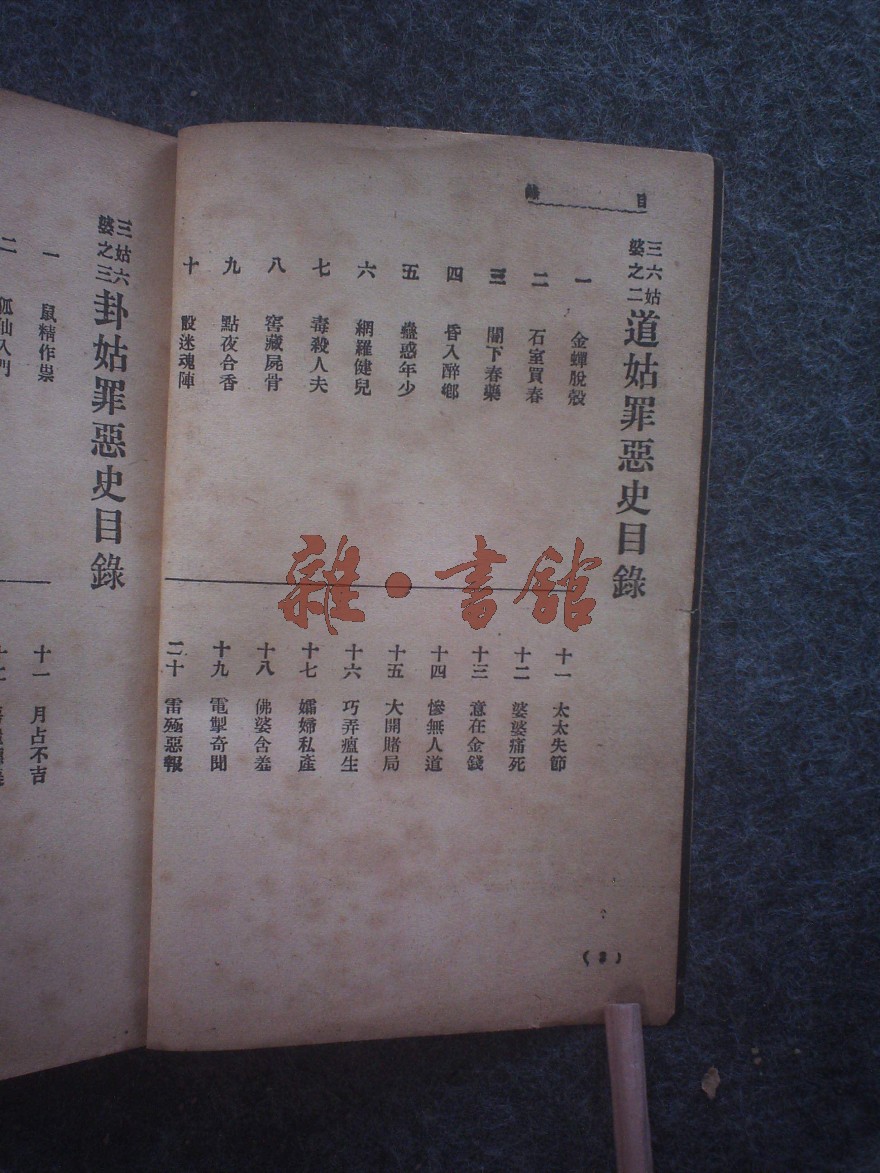 目錄
三姑六婆之二
道姑罪惡史目錄
一 金蟬脫殼
二 石室買春
三 閣下春藥
四 昏入醉鄉
五 蠱惑年少
六 網羅健兒
七 毒殺人夫
八 窖藏屍骨
九 點夜合香
十 設迷魂陣
十一 太太失節
十二 婆婆痛死
十三 意在金錢
十四 慘無人道
十五 大開賭局
十六 巧弄瘟生
十七 孀婦私產
十八 佛婆含羞
十九 電掣奇聞
二十 雷殛惡報
三姑六婆之三
卦姑罪惡史目錄
一 鼠精作祟
二 狐仙入門
十一 月占不吉
雜·書館